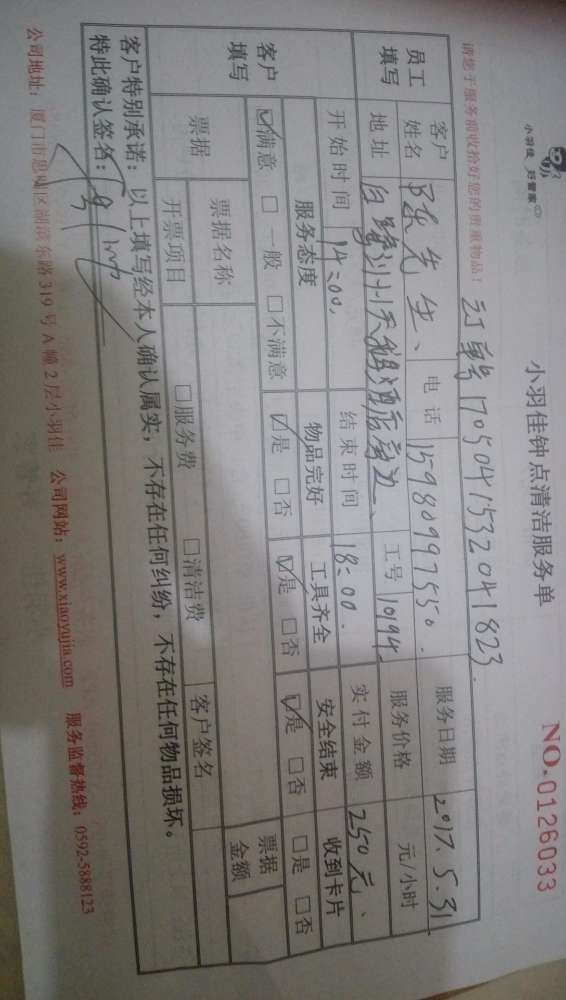 小羽佳 好管家
小羽佳钟点清洁服务单
NO.0126033
请您于服务前收拾好您的贵重物品！
订单号1705041532041823.
员工填写 客户姓名 陈先生、 电话 15980997550. 服务日期 2017.5.31
地址 白鹭洲天鹅酒店旁边、 工号 10194 服务价格 元/小时
开始时间 14:00. 结束时间 18:00. 实付金额 250元、
客户填写 服务态度 物品完好 工具齐全 安全结束 收到卡片
☑满意 □一般 □不满意 ☑是 □否 ☑是 □否 ☑是 □否 □是 □否
票据 票据名称 客户签名 票据金额
开票项目 □服务费 □清洁费
客户特别承诺：以上填写经本人确认属实，不存在任何纠纷，不存在任何物品损坏。
特此确认签名：
公司地址：厦门市思明区湖滨东路319号A幢2层小羽佳 公司网站：www.xiaoyujia.com 服务监督热线：0592-5888123